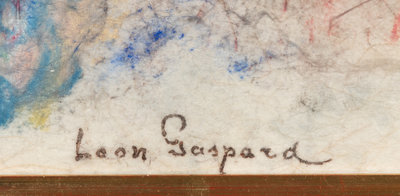 Leon Gaspard